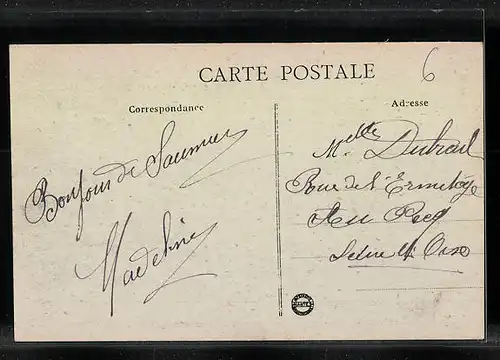 6
CARTE POSTALE
Correspondance
Adresse
Bonjour de Saumur
Madeleine
Melle Dutrait
Rue de l'Ermitage
Au Pecq
Seine et Oise